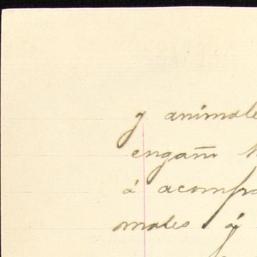 y animale
engañ
á acompa
males á